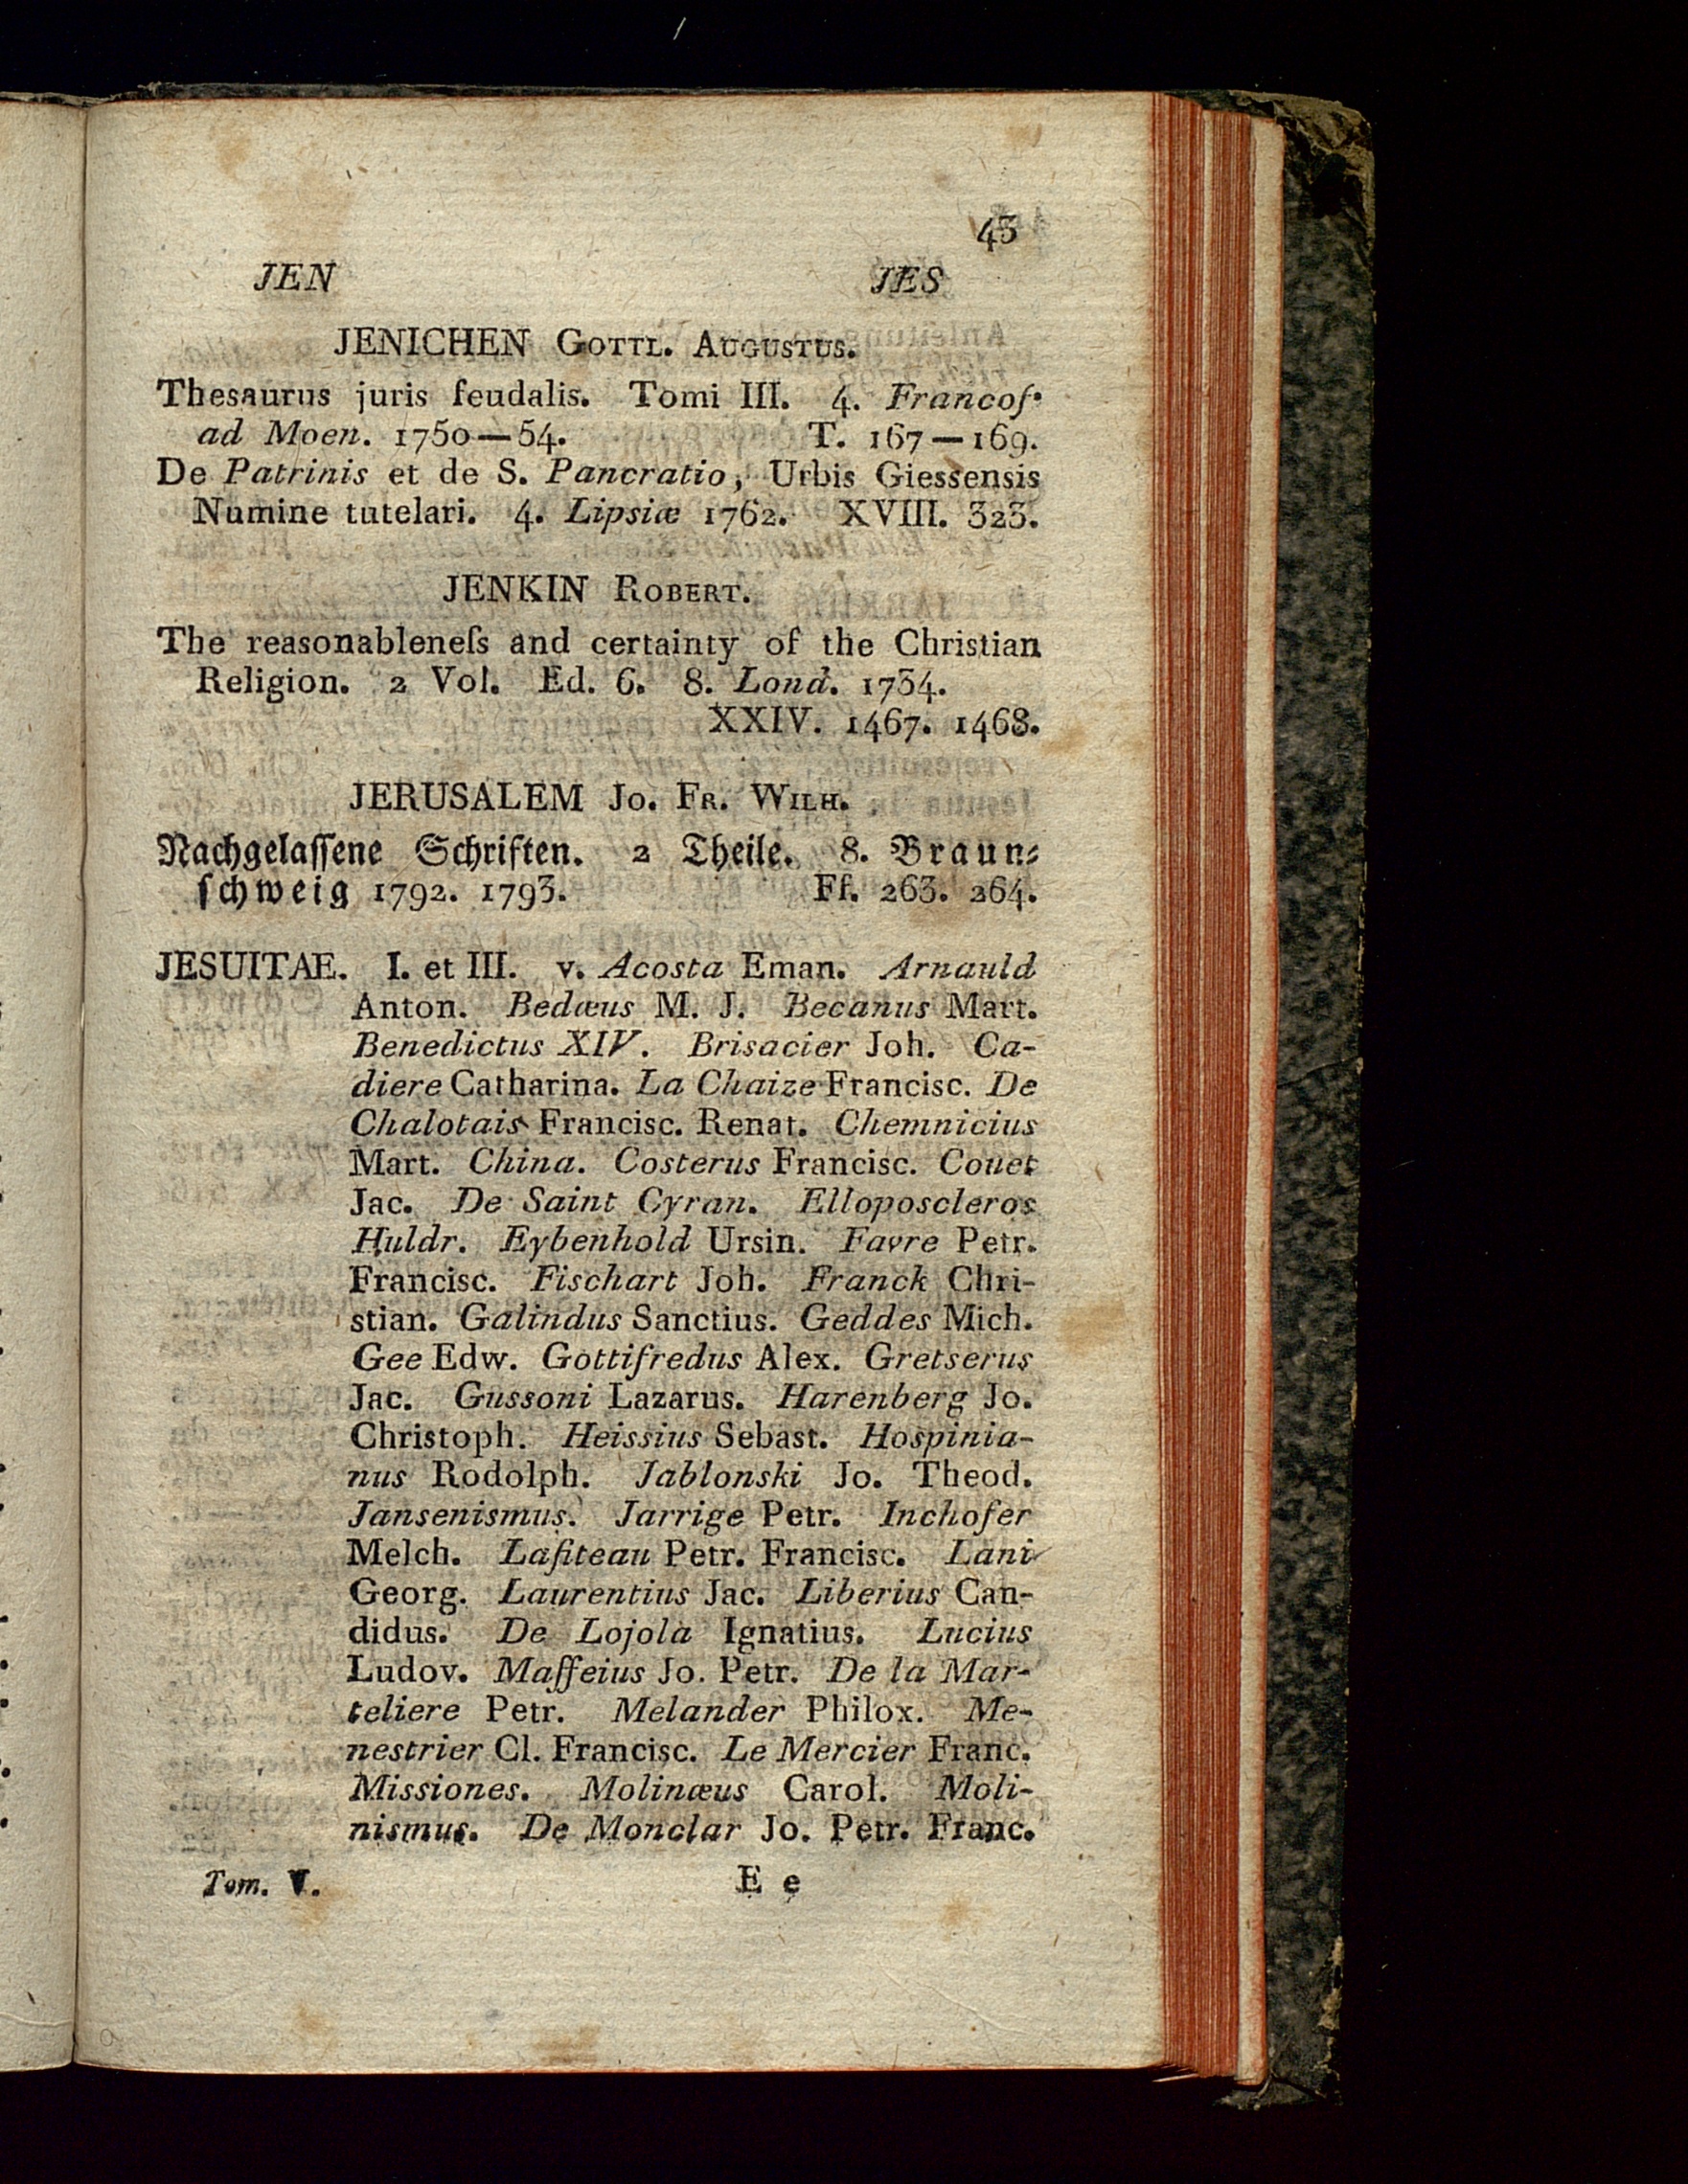 43
JEN JES
JENICHEN GOTTL. AUGUSTUS.
Thesaurus juris feudalis. Tomi III. 4. Francof.
ad Moen. 1750—54. T. 167—169.
De Patrinis et de S. Pancratio, Urbis Giessensis
Numine tutelari. 4. Lipsiæ 1762. XVIII. 323.
JENKIN ROBERT.
The reasonableneſs and certainty of the Christian
Religion. 2 Vol. Ed. 6. 8. Lond. 1734.
XXIV. 1467. 1468.
JERUSALEM JO. FR. WILH.
Nachgelaſſene Schriften. 2 Theile. 8. Braun-
ſchweig 1792. 1793. Ff. 263. 264.
JESUITAE. I. et III. v. Acosta Eman. Arnauld
Anton. Bedæus M. J. Becanus Mart.
Benedictus XIV. Brisacier Joh. Ca-
diere Catharina. La Chaize Francisc. De
Chalotais Francisc. Renat. Chemnicius
Mart. China. Costerus Francisc. Couet
Jac. De Saint Cyran. Elloposcleros
Huldr. Eybenhold Ursin. Favre Petr.
Francisc. Fischart Joh. Franck Chri-
stian. Galindus Sanctius. Geddes Mich.
Gee Edw. Gottifredus Alex. Gretserus
Jac. Gussoni Lazarus. Harenberg Jo.
Christoph. Heissius Sebast. Hospinia-
nus Rodolph. Jablonski Jo. Theod.
Jansenismus. Jarrige Petr. Inchofer
Melch. Lafiteau Petr. Francisc. Lani
Georg. Laurentius Jac. Liberius Can-
didus. De Lojola Ignatius. Lucius
Ludov. Maffeius Jo. Petr. De la Mar-
teliere Petr. Melander Philox. Me-
nestrier Cl. Francisc. Le Mercier Franc.
Missiones. Molinæus Carol. Moli-
nismus. De Monclar Jo. Petr. Franc.
Tom. V. E e